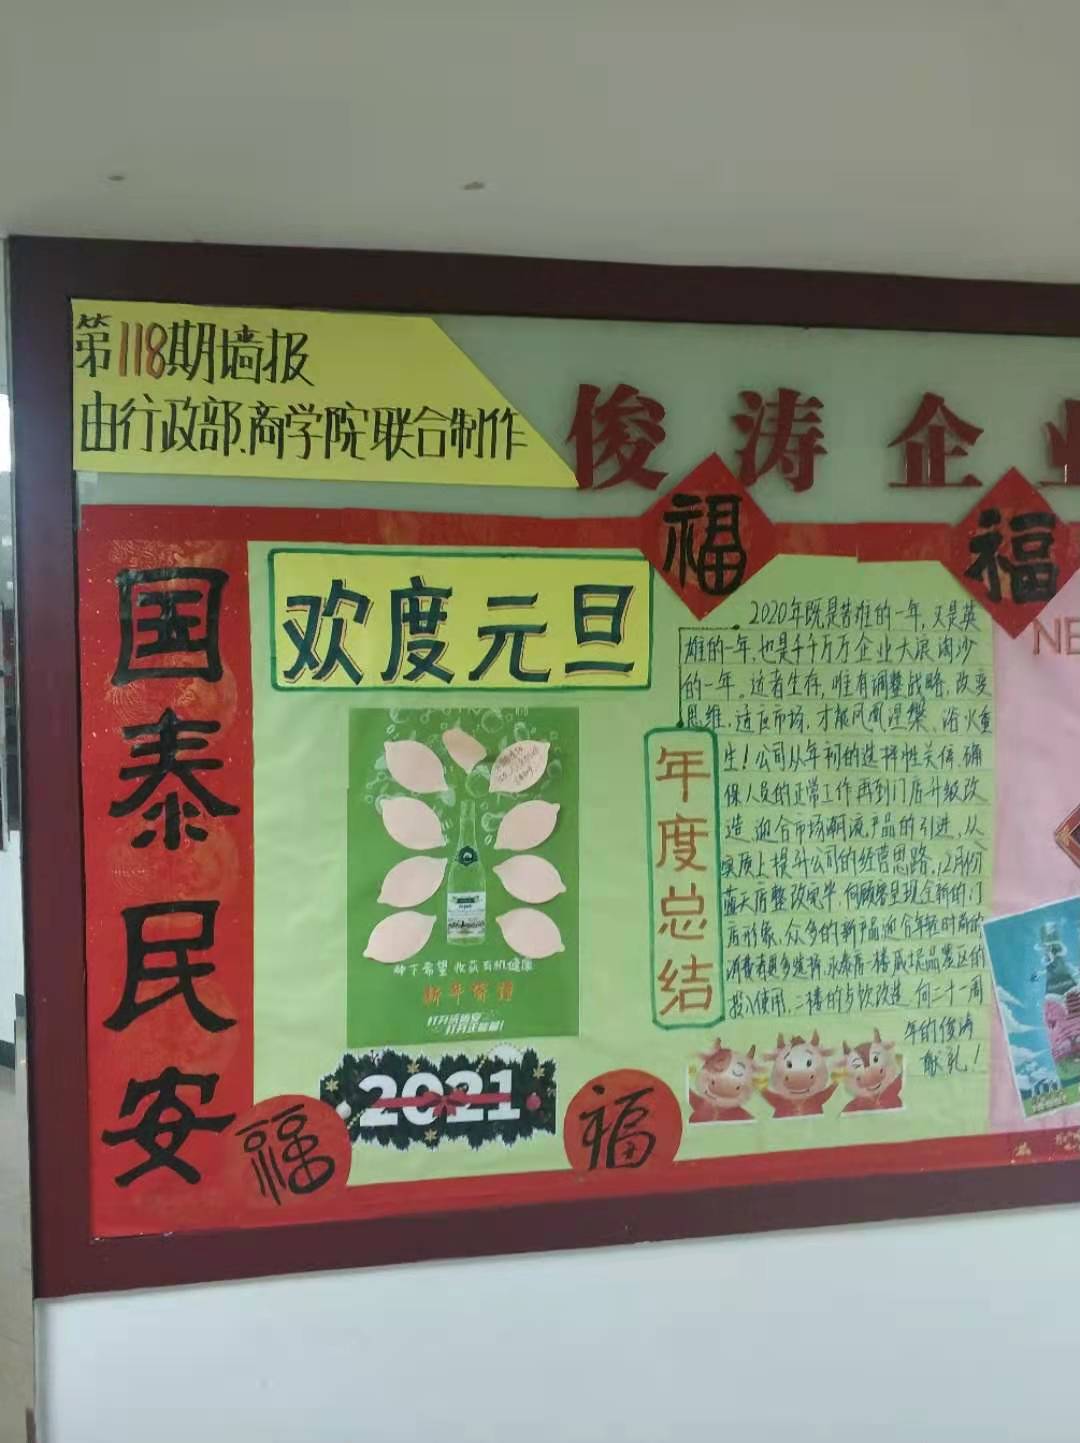 第118期墙报
由行政部、商学院联合制作
俊涛企业
福
福
国泰民安
欢度元旦
2020年既是苦难的一年,又是英
雄的一年,也是千千万万企业大浪淘沙
的一年。适者生存,唯有调整战略、改变
思维、适应市场,才能凤凰涅槃、浴火重
生!公司从年初的选择性关停,确
保人员的正常工作再到门店升级改
造、迎合市场潮流产品的引进,从
实质上提升公司的经营思路。12月份
蓝天店整改完毕,向顾客呈现全新的门
店形象,众多的新产品迎合年轻时尚的
消费者更多选择,永泰店一楼
品展区的
投入使用,二楼的
改造,向二十一周
年的俊涛
献礼!
年度总结
种下希望 收获有机健康
新年贺语
2021
福
福
NE